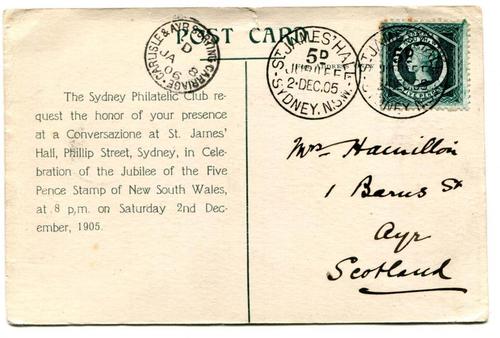 POST CARD
CARLISLE & AYR SORTING CARRIAGE
D
JA 8
06
ST. JAMES' HALL
5D
JUBILEE
2·DEC.05
SYDNEY. N.S.W.
The Sydney Philatelic Club re-
quest the honor of your presence
at a Conversazione at St. James'
Hall, Phillip Street, Sydney, in Cele-
bration of the Jubilee of the Five
Pence Stamp of New South Wales,
at 8 p.m. on Saturday 2nd Dec-
ember, 1905.
Mrs Hamilton
1 Barns St
Ayr
Scotland